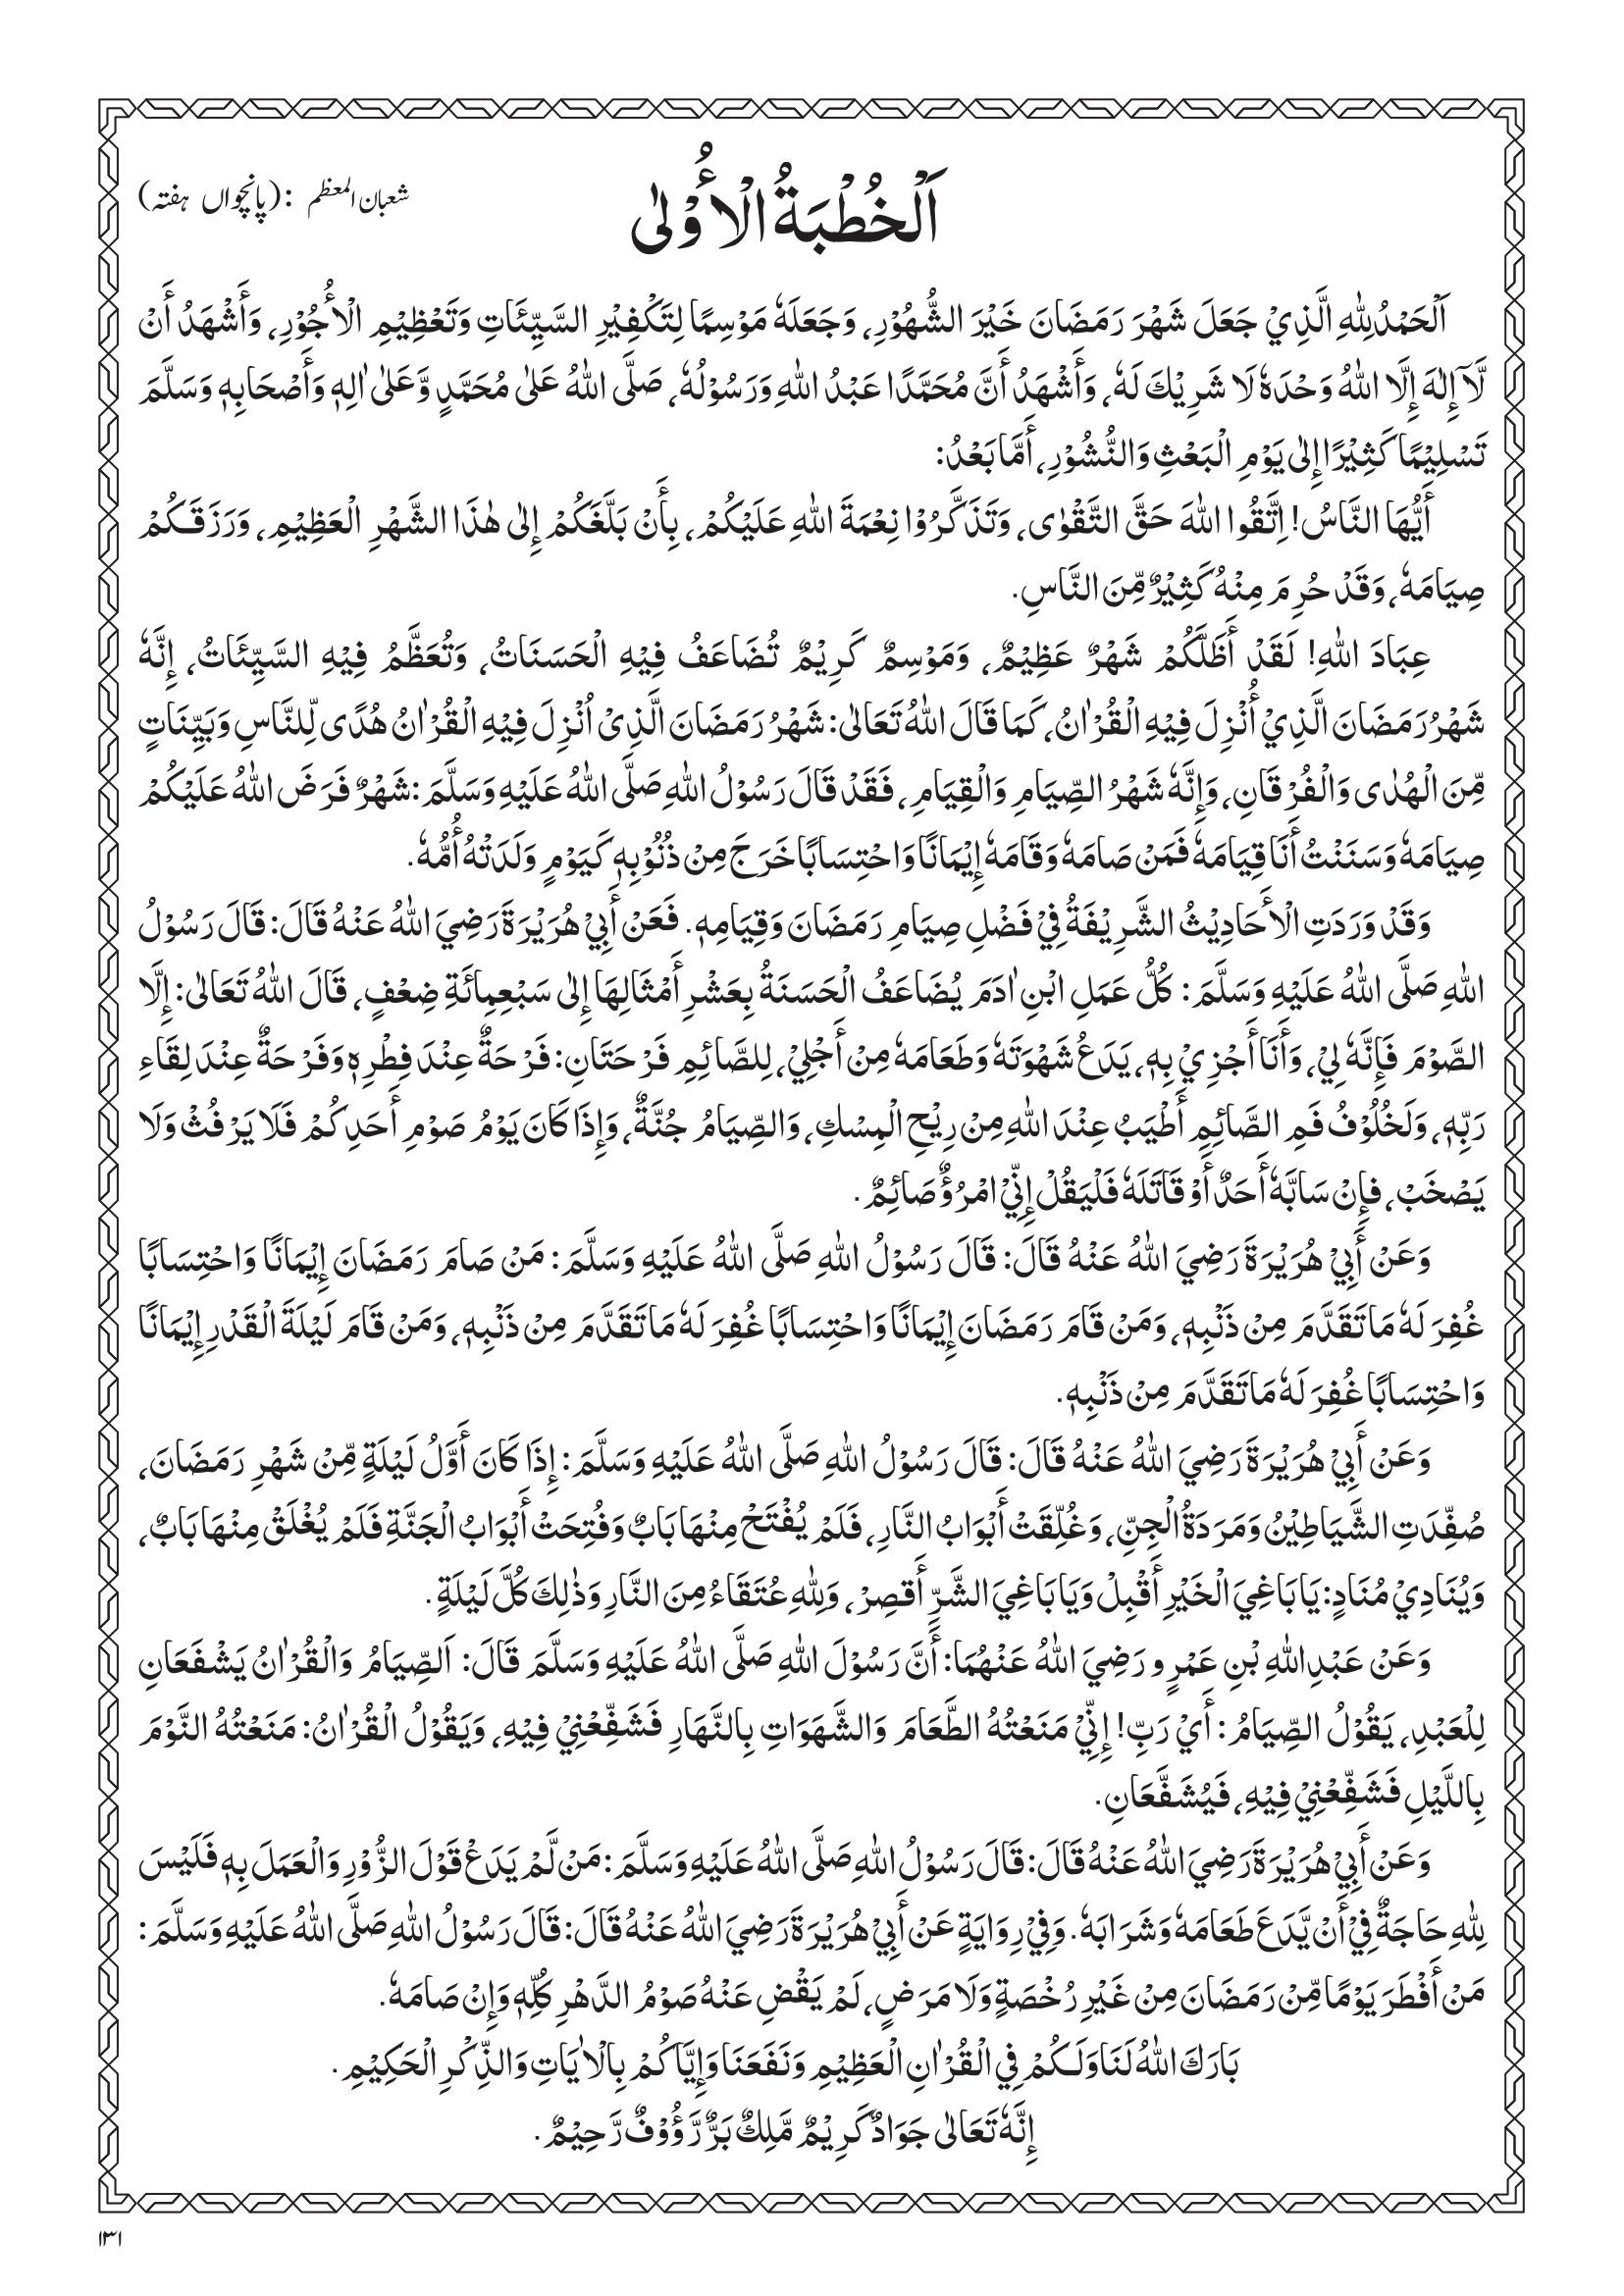 شعبان المعظم :(پانچواں ہفتہ)
اَلْخُطْبَةُ الْأُوْلٰى
اَلْحَمْدُ لِلّٰهِ الَّذِيْ جَعَلَ شَهْرَ رَمَضَانَ خَيْرَ الشُّهُوْرِ، وَجَعَلَهٗ مَوْسِمًا لِتَكْفِيْرِ السَّيِّئَاتِ وَتَعْظِيْمِ الْأُجُوْرِ، وَأَشْهَدُ أَنْ
لَّآ إِلٰهَ إِلَّا اللّٰهُ وَحْدَهٗ لَا شَرِيْكَ لَهٗ، وَأَشْهَدُ أَنَّ مُحَمَّدًا عَبْدُ اللّٰهِ وَرَسُوْلُهٗ، صَلَّى اللّٰهُ عَلٰى مُحَمَّدٍ وَّعَلٰى اٰلِهٖ وَأَصْحَابِهٖ وَسَلَّمَ
تَسْلِيْمًا كَثِيْرًا إِلٰى يَوْمِ الْبَعْثِ وَالنُّشُوْرِ، أَمَّا بَعْدُ:
أَيُّهَا النَّاسُ! اِتَّقُوا اللّٰهَ حَقَّ التَّقْوٰى، وَتَذَكَّرُوْا نِعْمَةَ اللّٰهِ عَلَيْكُمْ، بِأَنْ بَلَّغَكُمْ إِلٰى هٰذَا الشَّهْرِ الْعَظِيْمِ، وَرَزَقَكُمْ
صِيَامَهٗ، وَقَدْ حُرِمَ مِنْهُ كَثِيْرٌ مِّنَ النَّاسِ.
عِبَادَ اللّٰهِ! لَقَدْ أَظَلَّكُمْ شَهْرٌ عَظِيْمٌ، وَمَوْسِمٌ كَرِيْمٌ تُضَاعَفُ فِيْهِ الْحَسَنَاتُ، وَتُعَظَّمُ فِيْهِ السَّيِّئَاتُ، إِنَّهٗ
شَهْرُ رَمَضَانَ الَّذِيْ أُنْزِلَ فِيْهِ الْقُرْاٰنُ، كَمَا قَالَ اللّٰهُ تَعَالٰى: شَهْرُ رَمَضَانَ الَّذِىْ اُنْزِلَ فِيْهِ الْقُرْاٰنُ هُدًى لِّلنَّاسِ وَبَيِّنَاتٍ
مِّنَ الْهُدٰى وَالْفُرْقَانِ، وَإِنَّهٗ شَهْرُ الصِّيَامِ وَالْقِيَامِ، فَقَدْ قَالَ رَسُوْلُ اللّٰهِ صَلَّى اللّٰهُ عَلَيْهِ وَسَلَّمَ: شَهْرٌ فَرَضَ اللّٰهُ عَلَيْكُمْ
صِيَامَهٗ وَسَنَنْتُ أَنَا قِيَامَهٗ فَمَنْ صَامَهٗ وَقَامَهٗ إِيْمَانًا وَاحْتِسَابًا خَرَجَ مِنْ ذُنُوْبِهٖ كَيَوْمٍ وَلَدَتْهُ أُمُّهٗ.
وَقَدْ وَرَدَتِ الْأَحَادِيْثُ الشَّرِيْفَةُ فِيْ فَضْلِ صِيَامِ رَمَضَانَ وَقِيَامِهٖ. فَعَنْ أَبِيْ هُرَيْرَةَ رَضِيَ اللّٰهُ عَنْهُ قَالَ: قَالَ رَسُوْلُ
اللّٰهِ صَلَّى اللّٰهُ عَلَيْهِ وَسَلَّمَ: كُلُّ عَمَلِ ابْنِ اٰدَمَ يُضَاعَفُ الْحَسَنَةُ بِعَشْرِ أَمْثَالِهَا إِلٰى سَبْعِمِائَةِ ضِعْفٍ، قَالَ اللّٰهُ تَعَالٰى: إِلَّا
الصَّوْمَ فَإِنَّهٗ لِيْ، وَأَنَا أَجْزِيْ بِهٖ، يَدَعُ شَهْوَتَهٗ وَطَعَامَهٗ مِنْ أَجْلِيْ، لِلصَّائِمِ فَرْحَتَانِ: فَرْحَةٌ عِنْدَ فِطْرِهٖ وَفَرْحَةٌ عِنْدَ لِقَاءِ
رَبِّهٖ، وَلَخُلُوْفُ فَمِ الصَّائِمِ أَطْيَبُ عِنْدَ اللّٰهِ مِنْ رِيْحِ الْمِسْكِ، وَالصِّيَامُ جُنَّةٌ، وَإِذَا كَانَ يَوْمُ صَوْمِ أَحَدِكُمْ فَلَا يَرْفُثْ وَلَا
يَصْخَبْ، فإِنْ سَابَّهٗ أَحَدٌ أَوْ قَاتَلَهٗ فَلْيَقُلْ إِنِّيْ امْرُؤٌ صَائِمٌ.
وَعَنْ أَبِيْ هُرَيْرَةَ رَضِيَ اللّٰهُ عَنْهُ قَالَ: قَالَ رَسُوْلُ اللّٰهِ صَلَّى اللّٰهُ عَلَيْهِ وَسَلَّمَ: مَنْ صَامَ رَمَضَانَ إِيْمَانًا وَاحْتِسَابًا
غُفِرَ لَهٗ مَا تَقَدَّمَ مِنْ ذَنْبِهٖ، وَمَنْ قَامَ رَمَضَانَ إِيْمَانًا وَاحْتِسَابًا غُفِرَ لَهٗ مَا تَقَدَّمَ مِنْ ذَنْبِهٖ، وَمَنْ قَامَ لَيْلَةَ الْقَدْرِ إِيْمَانًا
وَاحْتِسَابًا غُفِرَ لَهٗ مَا تَقَدَّمَ مِنْ ذَنْبِهٖ.
وَعَنْ أَبِيْ هُرَيْرَةَ رَضِيَ اللّٰهُ عَنْهُ قَالَ: قَالَ رَسُوْلُ اللّٰهِ صَلَّى اللّٰهُ عَلَيْهِ وَسَلَّمَ: إِذَا كَانَ أَوَّلُ لَيْلَةٍ مِّنْ شَهْرِ رَمَضَانَ،
صُفِّدَتِ الشَّيَاطِيْنُ وَمَرَدَةُ الْجِنِّ، وَغُلِّقَتْ أَبْوَابُ النَّارِ، فَلَمْ يُفْتَحْ مِنْهَا بَابٌ وَفُتِحَتْ أَبْوَابُ الْجَنَّةِ فَلَمْ يُغْلَقْ مِنْهَا بَابٌ،
وَيُنَادِيْ مُنَادٍ: يَا بَاغِيَ الْخَيْرِ أَقْبِلْ وَيَا بَاغِيَ الشَّرِّ أَقْصِرْ، وَلِلّٰهِ عُتَقَاءُ مِنَ النَّارِ وَذٰلِكَ كُلَّ لَيْلَةٍ.
وَعَنْ عَبْدِ اللّٰهِ بْنِ عَمْرٍو رَضِيَ اللّٰهُ عَنْهُمَا: أَنَّ رَسُوْلَ اللّٰهِ صَلَّى اللّٰهُ عَلَيْهِ وَسَلَّمَ قَالَ: اَلصِّيَامُ وَالْقُرْاٰنُ يَشْفَعَانِ
لِلْعَبْدِ، يَقُوْلُ الصِّيَامُ: أَيْ رَبِّ! إِنِّيْ مَنَعْتُهُ الطَّعَامَ وَالشَّهَوَاتِ بِالنَّهَارِ فَشَفِّعْنِيْ فِيْهِ، وَيَقُوْلُ الْقُرْاٰنُ: مَنَعْتُهُ النَّوْمَ
بِاللَّيْلِ فَشَفِّعْنِيْ فِيْهِ، فَيُشَفَّعَانِ.
وَعَنْ أَبِيْ هُرَيْرَةَ رَضِيَ اللّٰهُ عَنْهُ قَالَ: قَالَ رَسُوْلُ اللّٰهِ صَلَّى اللّٰهُ عَلَيْهِ وَسَلَّمَ: مَنْ لَّمْ يَدَعْ قَوْلَ الزُّوْرِ وَالْعَمَلَ بِهٖ فَلَيْسَ
لِلّٰهِ حَاجَةٌ فِيْ أَنْ يَّدَعَ طَعَامَهٗ وَشَرَابَهٗ. وَفِيْ رِوَايَةٍ عَنْ أَبِيْ هُرَيْرَةَ رَضِيَ اللّٰهُ عَنْهُ قَالَ: قَالَ رَسُوْلُ اللّٰهِ صَلَّى اللّٰهُ عَلَيْهِ وَسَلَّمَ:
مَنْ أَفْطَرَ يَوْمًا مِّنْ رَمَضَانَ مِنْ غَيْرِ رُخْصَةٍ وَلَا مَرَضٍ، لَمْ يَقْضِ عَنْهُ صَوْمُ الدَّهْرِ كُلِّهٖ وَإِنْ صَامَهٗ.
بَارَكَ اللّٰهُ لَنَا وَلَكُمْ فِي الْقُرْاٰنِ الْعَظِيْمِ وَنَفَعَنَا وَإِيَّاكُمْ بِالْاٰيَاتِ وَالذِّكْرِ الْحَكِيْمِ.
إِنَّهٗ تَعَالٰى جَوَادٌ كَرِيْمٌ مَّلِكٌ بَرٌّ رَّؤُوْفٌ رَّحِيْمٌ.
۱۳۱